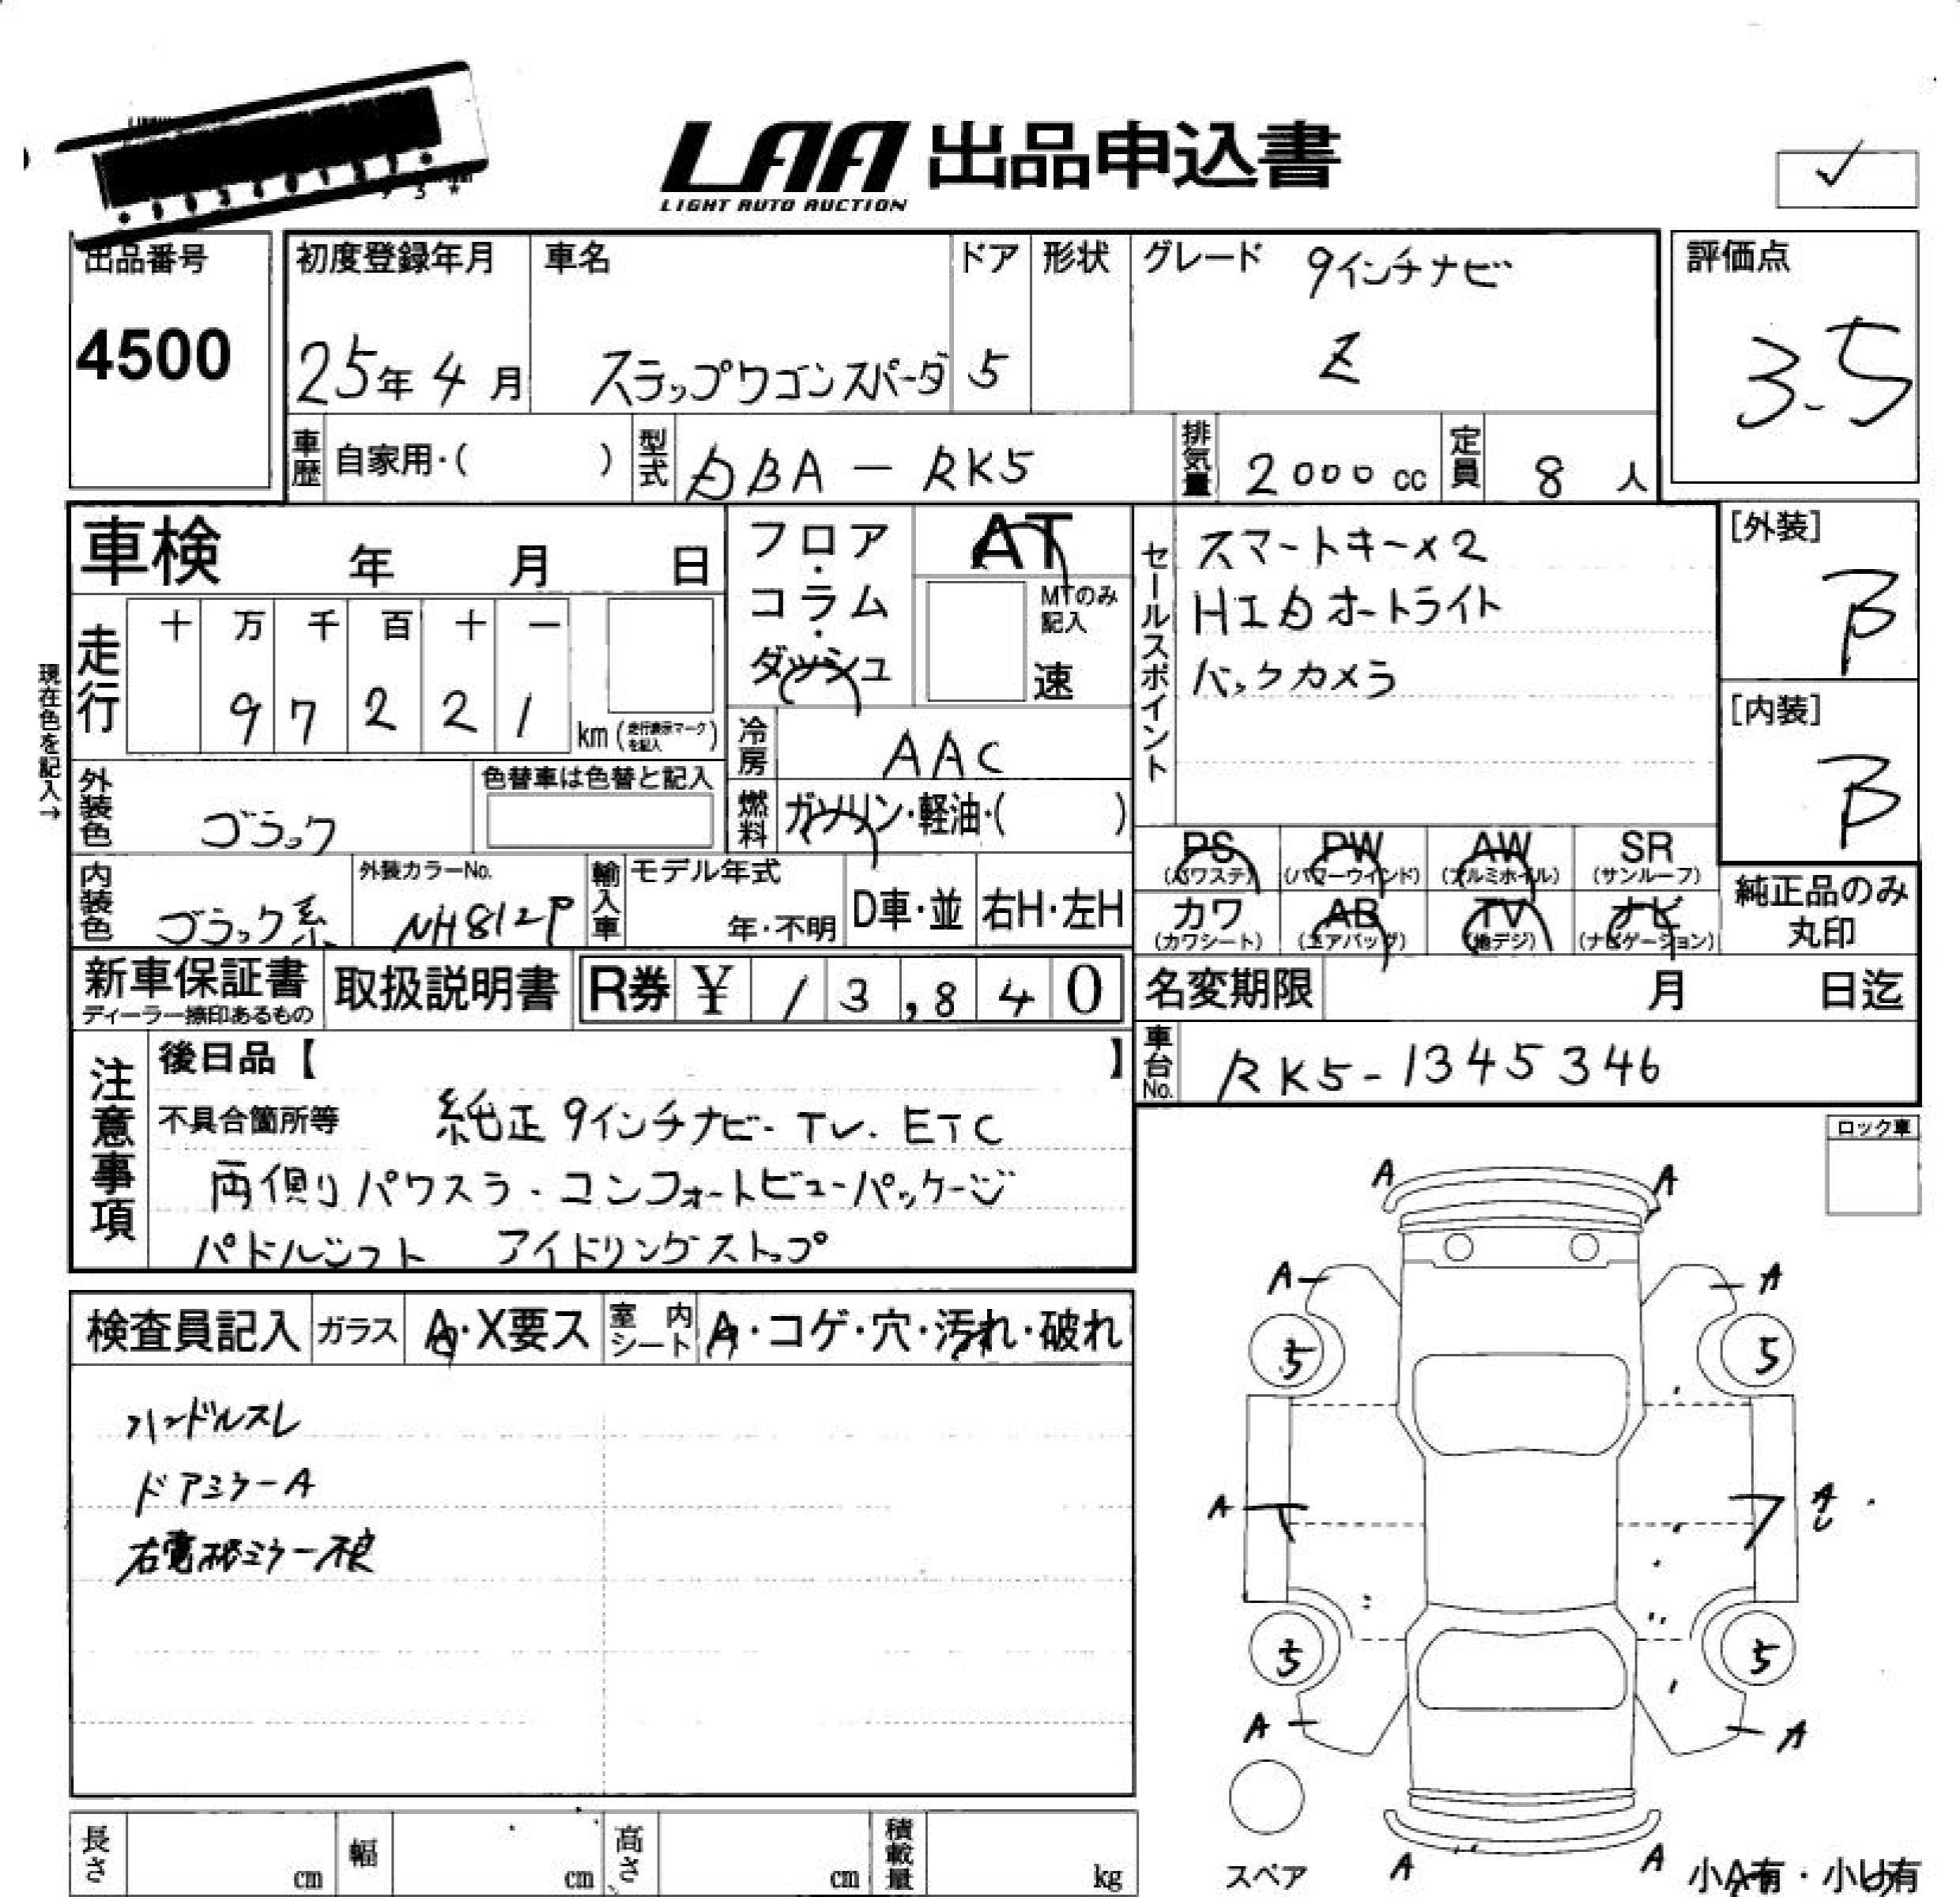 LAA 出品申込書
LIGHT AUTO AUCTION
✓
出品番号
4500
初度登録年月
25年 4月
車名
ステップワゴンスパーダ
ドア
5
形状
グレード
9インチナビ
Z
評価点
3.5
車歴
自家用・( )
型式
DBA - RK5
排気量
2000 cc
定員
8 人
車検 年 月 日
フロア・コラム・ダッシュ
AT
MTのみ記入
速
セールスポイント
スマートキー×2
HIDオートライト
バックカメラ
[外装]
B
[内装]
B
現在色を記入→
走行
十 万 千 百 十 一
9 7 2 2 1
km (走行表示マークを記入)
冷房
AAC
燃料
ガソリン・軽油・( )
外装色
ブラック
色替車は色替と記入
内装色
ブラック系
外装カラーNo.
NH812P
輸入車
モデル年式
年・不明
D車・並
右H・左H
PS (パワステ)
PW (パワーウインド)
AW (アルミホイル)
SR (サンルーフ)
カワ (カワシート)
AB (エアバッグ)
TV (地デジ)
ナビ (ナビゲーション)
純正品のみ
丸印
新車保証書
ディーラー捺印あるもの
取扱説明書
R券 ¥ 13,840
名変期限 月 日迄
車台No.
RK5-1345346
注意事項
後日品【 】
不具合箇所等
純正 9インチナビ・TV・ETC
両側パワスラ・コンフォートビューパッケージ
パドルシフト アイドリングストップ
ロック車
検査員記入
ガラス
A・X要ス
室内シート
A・コゲ・穴・汚れ・破れ
ハンドルスレ
ドアミラーA
右電格ミラー不良
A A
A A
5 5
A A
5 5
A A
A A
スペア
小A有・小U有
長さ cm
幅 cm
高さ cm
積載量 kg